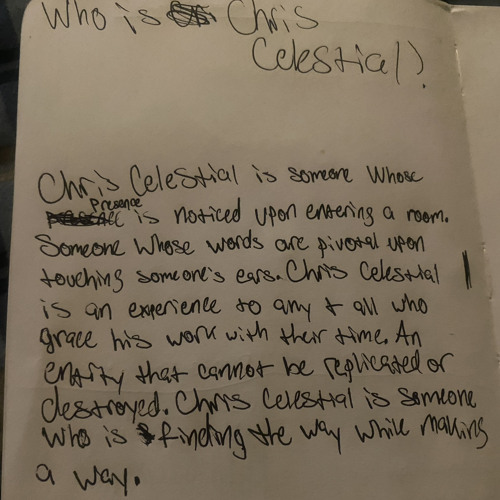 Who is Chris
Celestial?
Chris Celestial is someone whose
Presence
is noticed upon entering a room.
Someone whose words are pivotal upon
touching someone's ears. Chris Celestial
is an experience to any & all who
grace his work with their time. An
entity that cannot be replicated or
destroyed. Chris Celestial is someone
who is finding the way while making
a way.